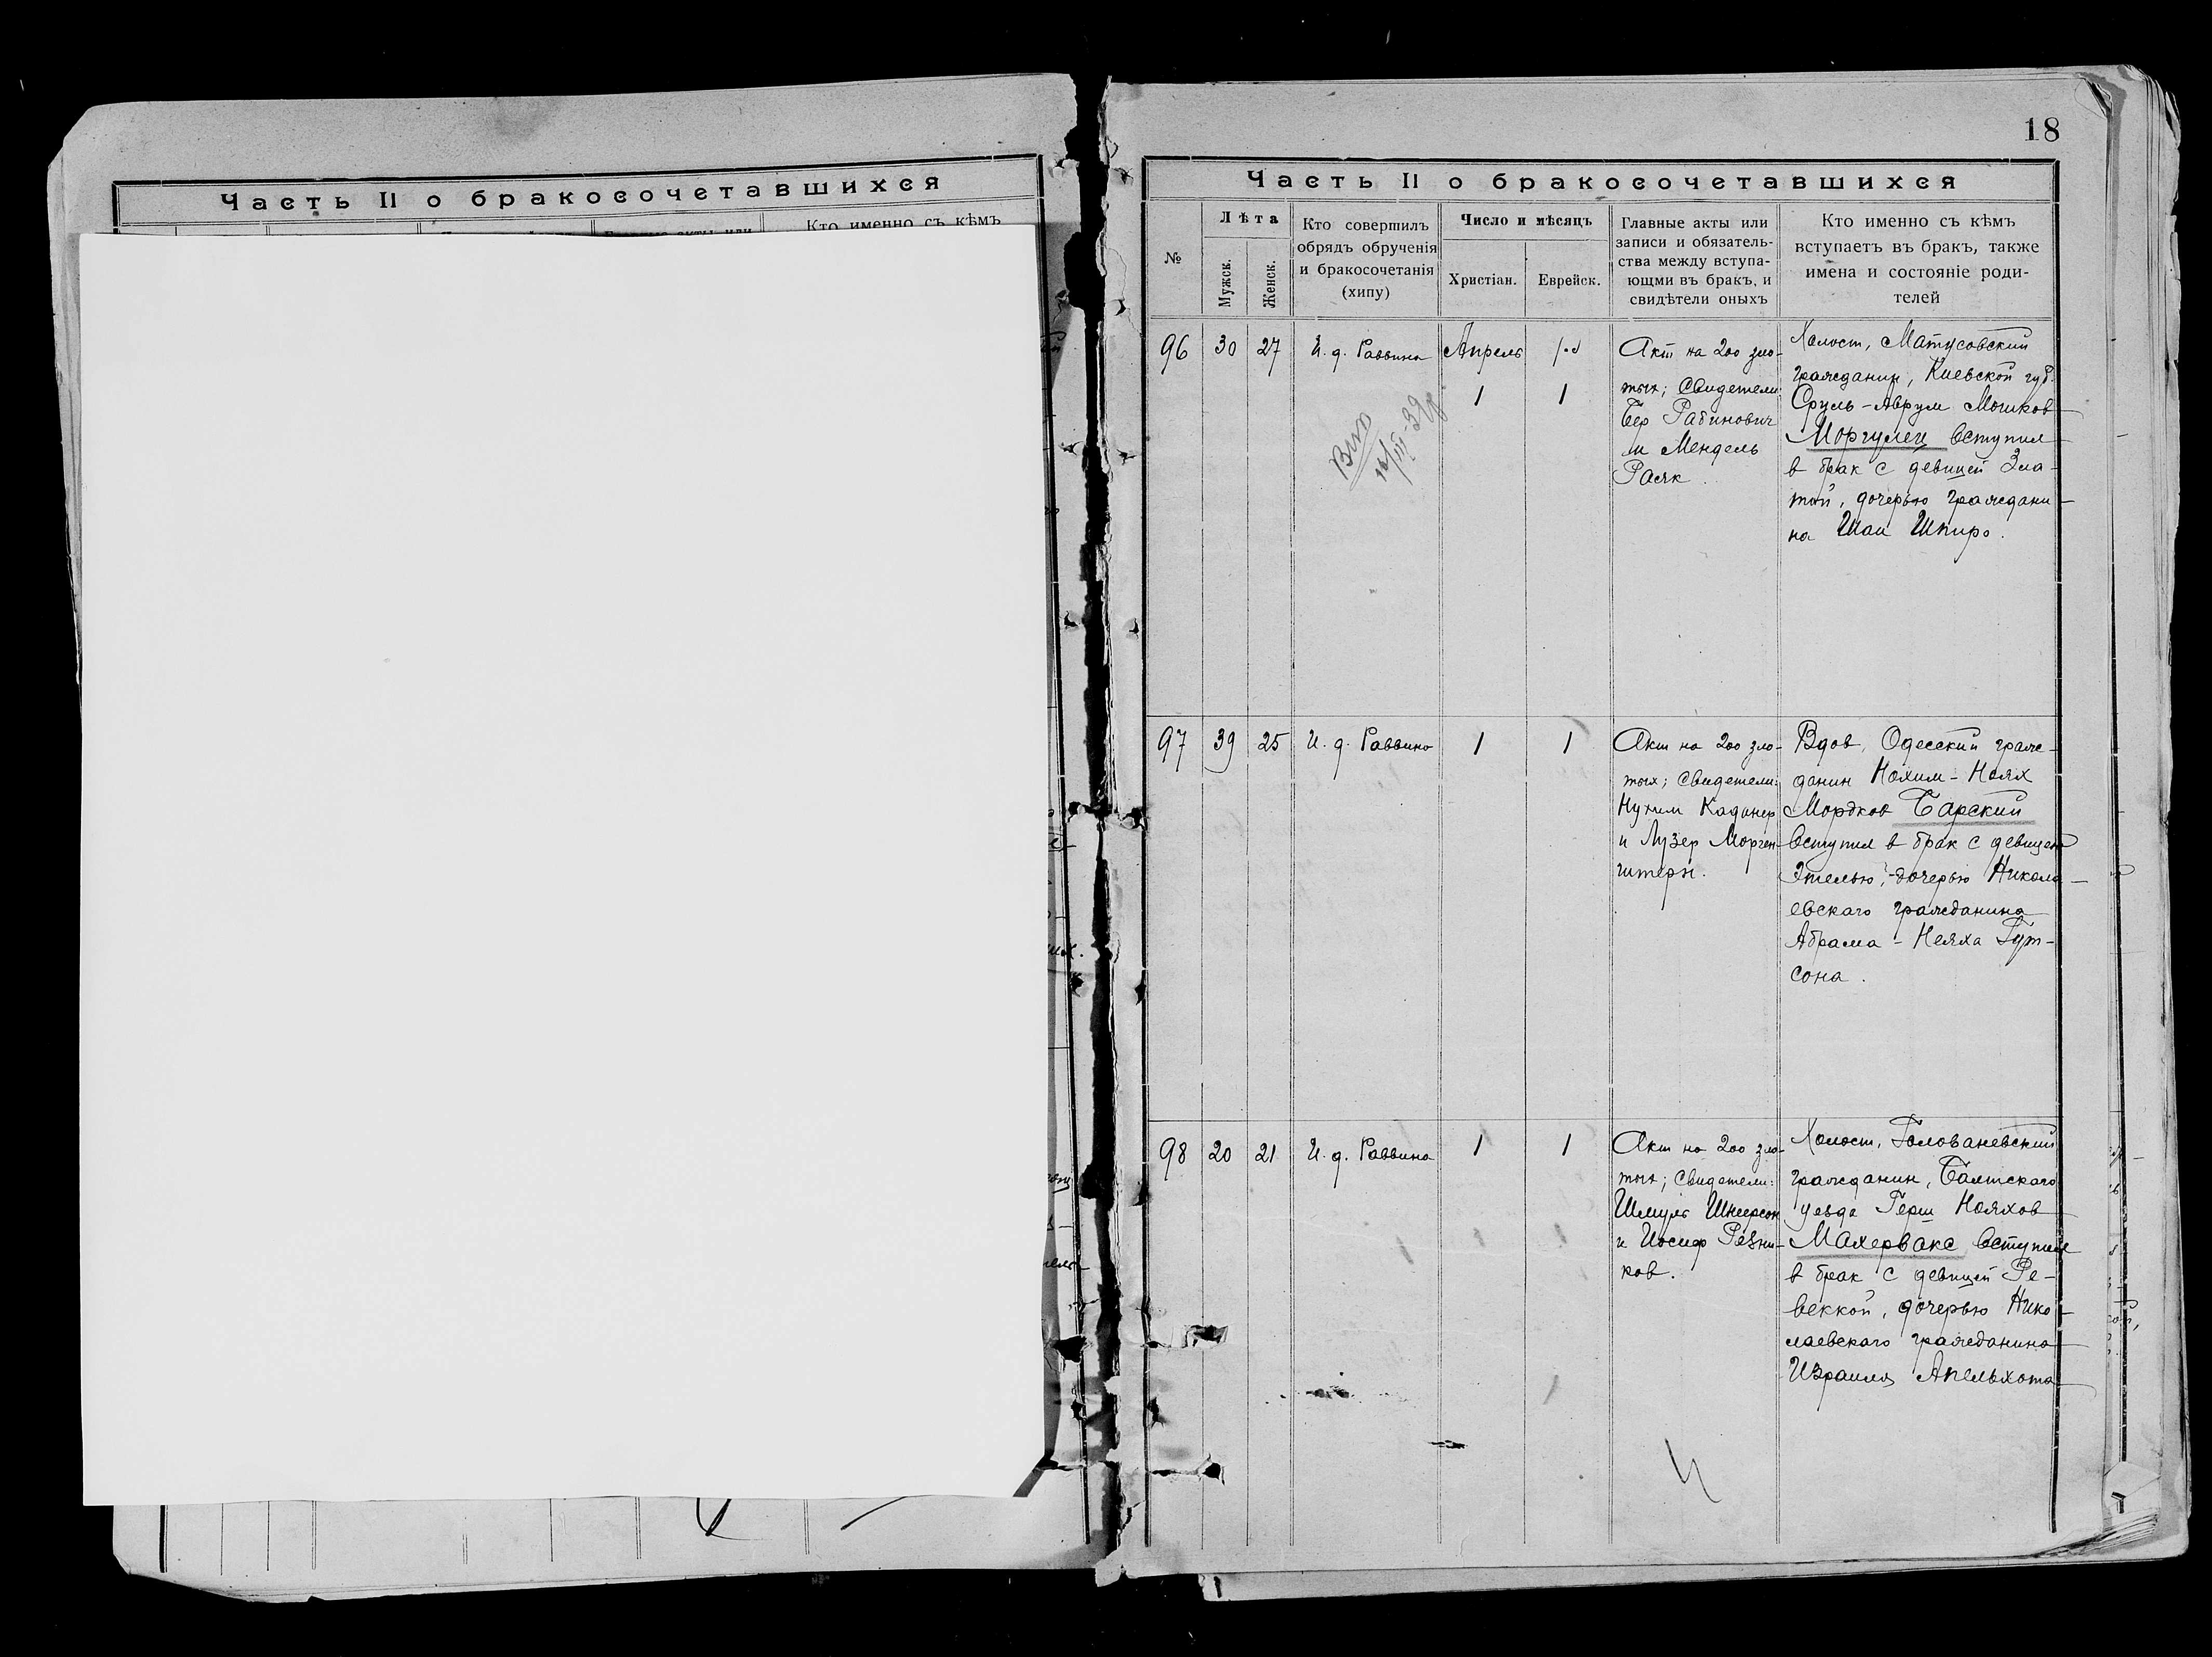 Часть II о бракосочетавшихся
Кто именно съ кѣмъ
18
Часть II о бракосочетавшихся
№
Лѣта
Мужск.
Женск.
Кто совершилъ
обрядъ обрученія
и бракосочетанія
(хипу)
Число и мѣсяцъ
Христіан.
Еврейск.
Главные акты или
записи и обязатель-
ства между вступа-
ющми въ бракъ, и
свидѣтели оныхъ
Кто именно съ кѣмъ
вступаетъ въ бракъ, также
имена и состояніе роди-
телей
96
30
27
И. д. Раввина
Апрель
1
1
Акт на 200 зло-
тых; Свидетели
Бер Рабинович
и Мендель
Расяк
Холост, Матусовский
гражданин, Киевской губ.
Сруль-Аврум Мошков
Моргулец вступил
в брак с девицей Зла-
той, дочерью граждани-
на Шаи Шпиро.
97
39
25
И. д. Раввина
1
1
Акт на 200 зло-
тых; Свидетели:
Нухим Каданер
и Лузер Морген-
штерн.
Вдов, Одесский граж-
данин Нохим-Ноях
Мордков Барский
вступил в брак с девицею
Этелью, дочерью Никола-
евскаго гражданина
Абрама-Нояха Гут-
сона.
98
20
21
И. д. Раввина
1
1
Акт на 200 зло-
тых; Свидетели:
Шмуль Шнеерсон
и Иосиф Резни-
ков.
Холост, Голованевский
гражданин, Балтскаго
уезда Герш Нояхов
Махервакс вступил
в брак с девицей Ре-
веккой, дочерью Нико-
лаевскаго гражданина
Израиля Апельхота